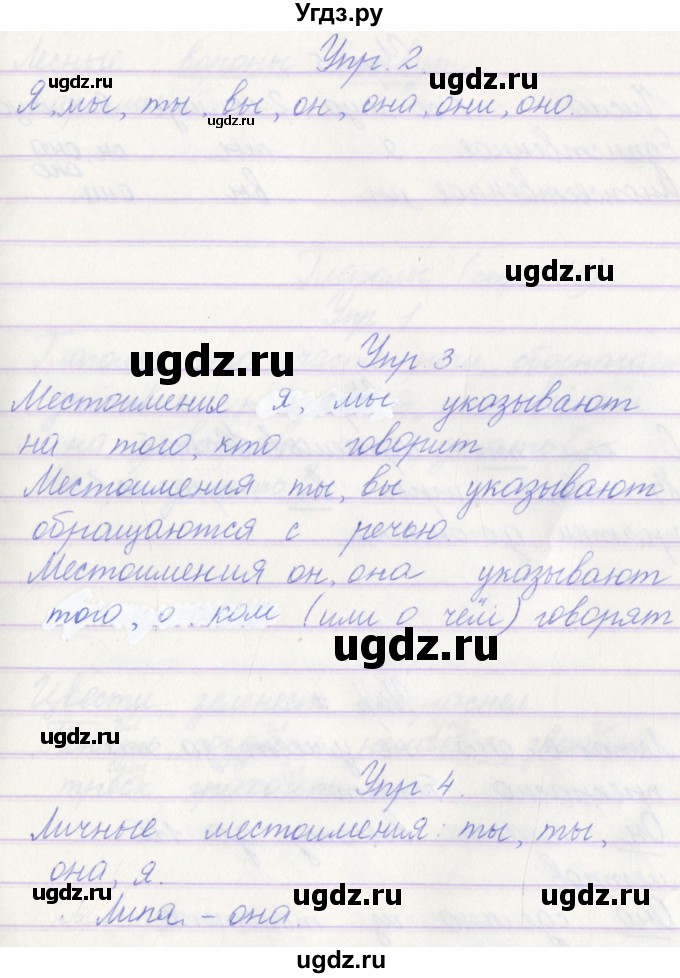 Угдз.ру
Упр. 2
ugdz.ru
Я, мы, ты, вы, он, она, они, оно.
ugdz.ru ugdz.ru
ugdz.ru
ugdz.ru
Упр. 3.
Местоименье я, мы указывают
на того, кто говорит
Местоимения ты, вы указывают
обращаются с речью.
Местоимения он, она указывают
того, о ком (или о чём) говорят
ugdz.ru
ugdz.ru
Упр. 4.
Личные местоимения: ты, ты,
она, я.
ugdz.ru ugdz.ru ugdz.ru
Липа - она.
ugdz.ru